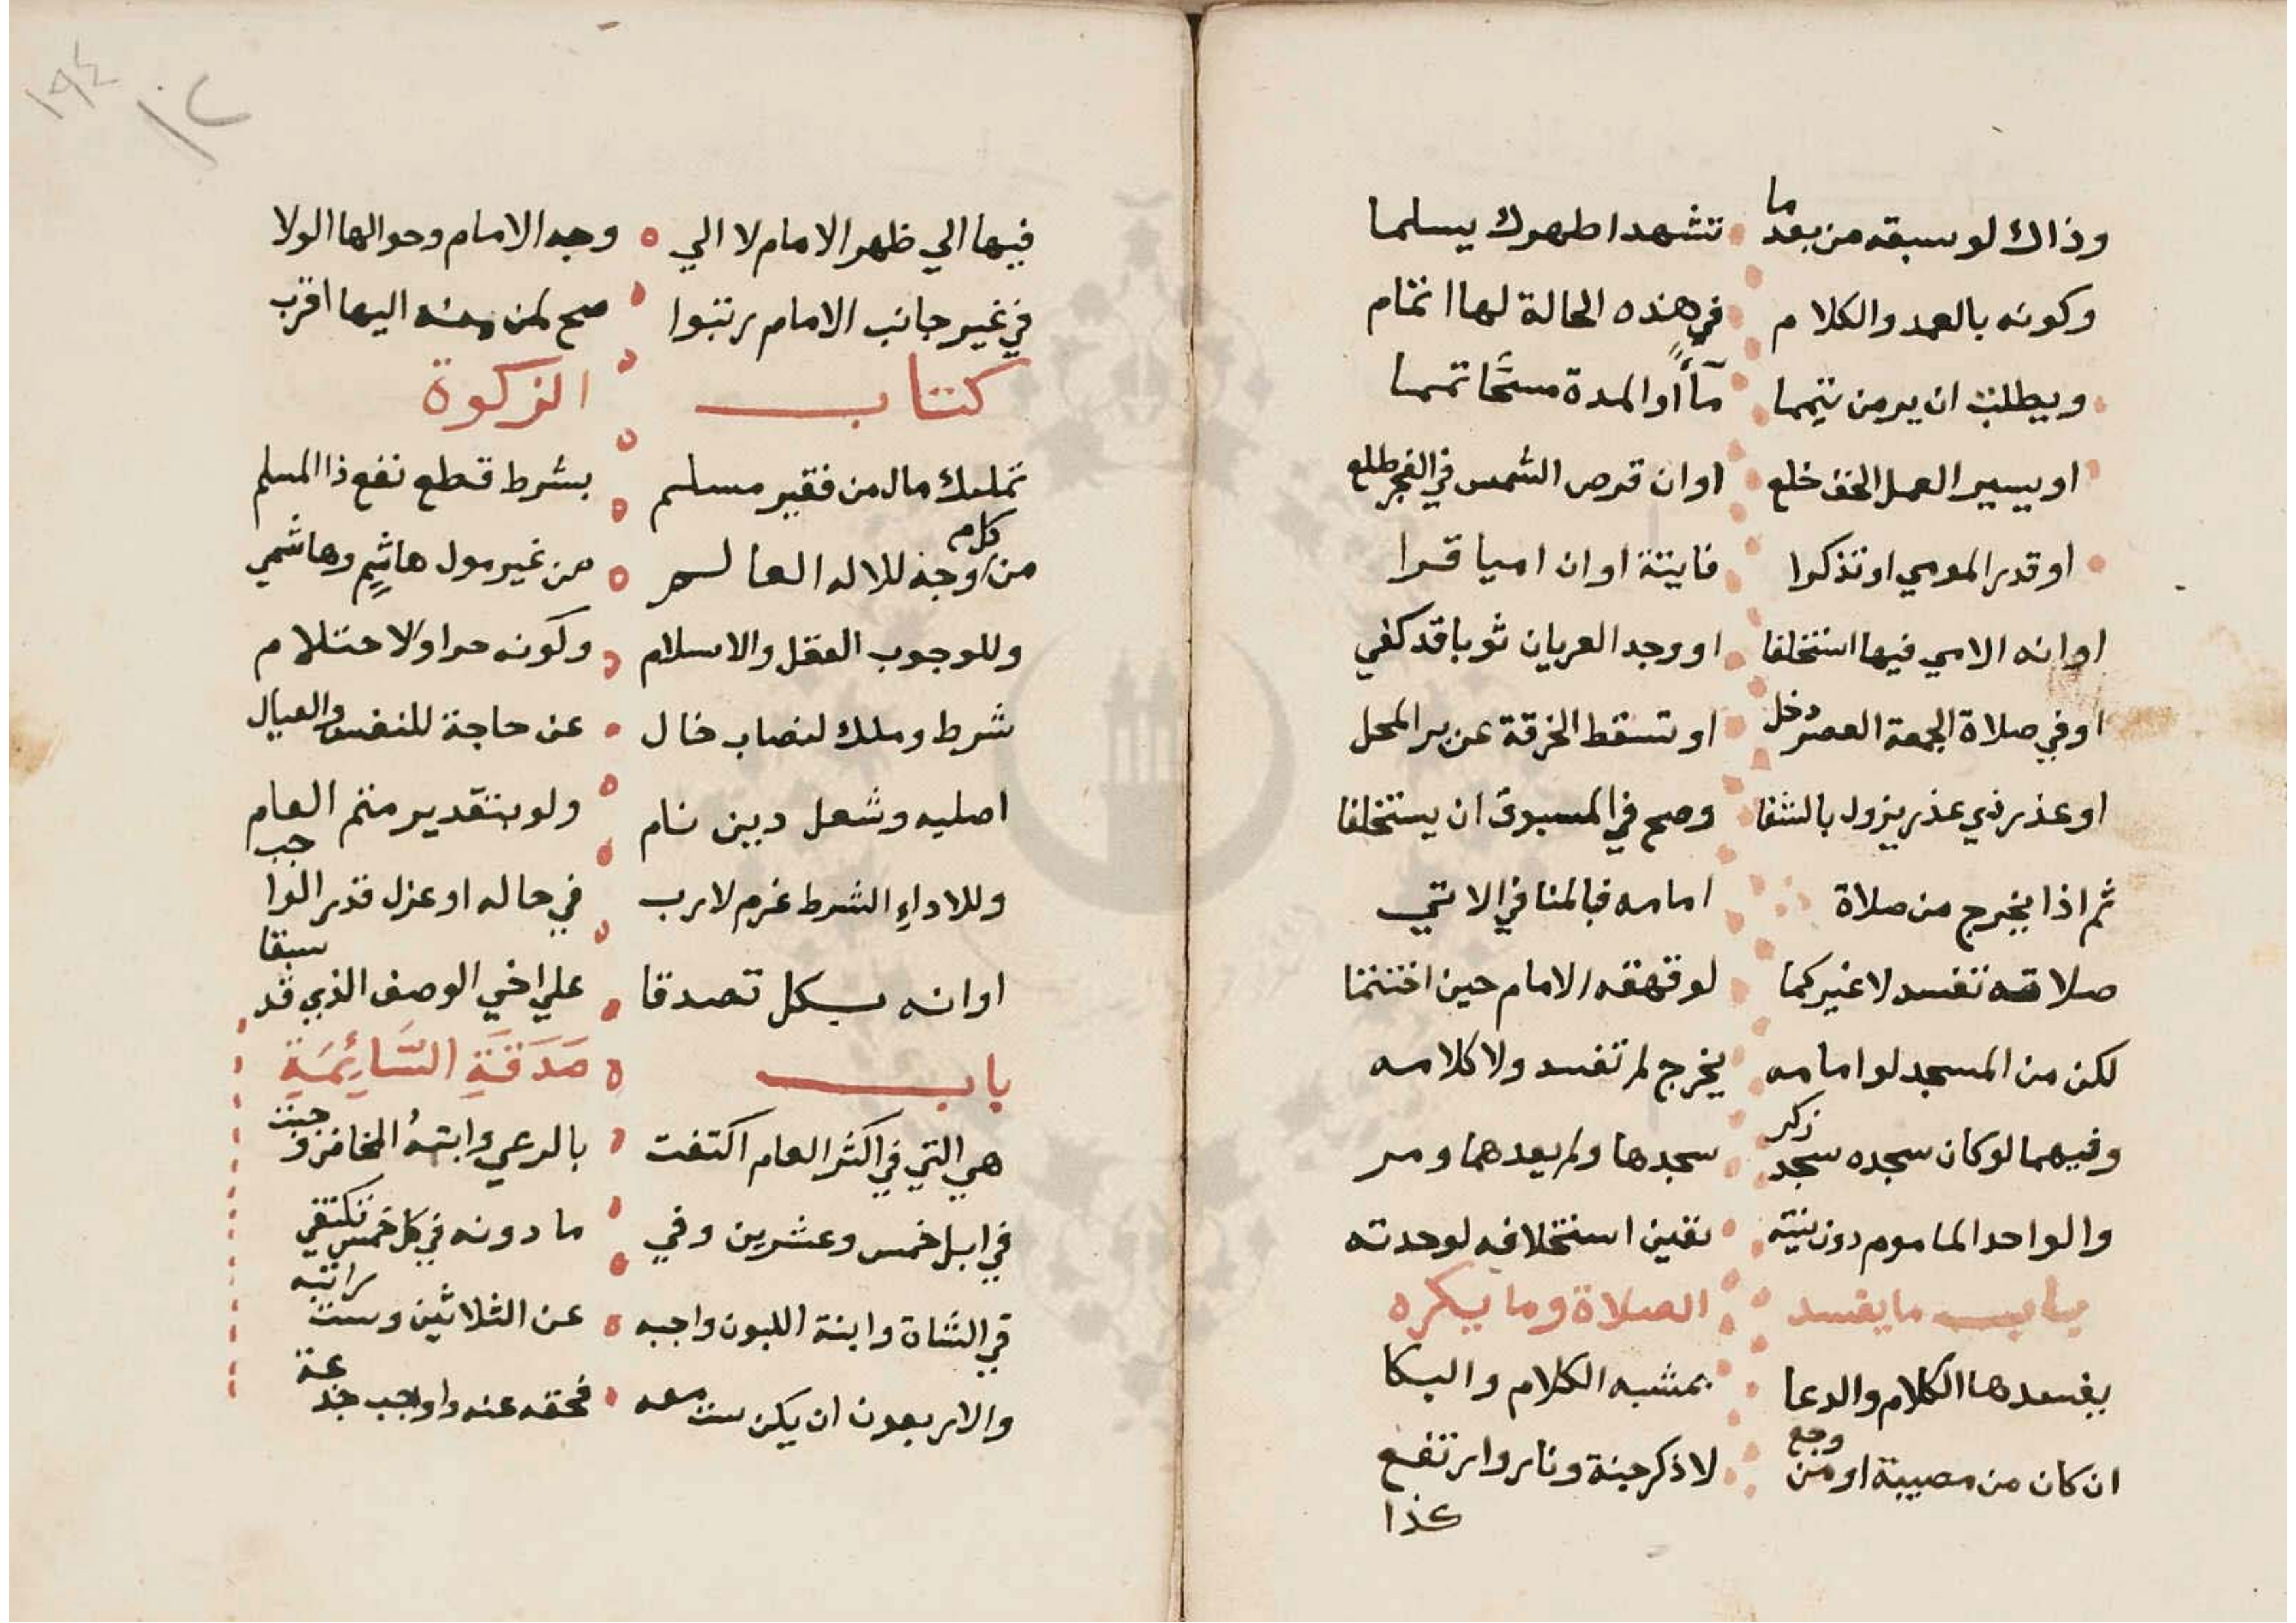 وذاك لو سبقه من بعد ما تشهدا طهرك يسلما
وكونه بالعمد والكلام في هذه الحالة لها اتمام
ويطلت ان يرمن تيمما مآأ أو المدة مسحًا تمما
او بيسير العمل الخف خلع او ان قرص الشمس في الفجر طلع
او قدر المومي او تذكرا فايتة او ان اميا قرا
او انه الامي فيها استخلفا او وجد العريان ثوبا قد كفي
او في صلاة الجمعة العصر دخل او تسقط الخرقة عن بر المحل
او عذر ذي عذر يزول بالشفا وصح في المسبوق ان يستخلفا
ثم اذا يخرج من صلاة امامه فالمنافي الاتي
صلاته تفسد لا غير كما لو قهقه الامام حين اختتما
لكن من المسجد لو امامه يخرج لم تفسد ولا كلامه
وفيهما لو كان سجده سجد ذكر سجدها ولم يعدهما ومر
والواحد الماموم دون نيته تعين استخلافه لوحدته
باب ما يفسد الصلاة وما يكره
يفسدها الكلام والدعا بمشبه الكلام والبكا
ان كان من مصيبة او من وجع لا ذكر جنة ونار وارتفع
كذا
١٩٤
١٠٢
فيها الي ظهر الامام لا الي وجه الامام وحوالها الولا
في غير جانب الامام رتبوا صح لمن منه اليها اقرب
كتاب الزكوة
تمليك مال من فقير مسلم بشرط قطع نفع ذا المسلم
من كل وجه للاله العالم من غير مول هاشم وهاشمي
وللوجوب العقل والاسلام وكونه حرا والاحتلام
شرط وملك لنصاب خال عن حاجة للنفس والعيال
اصليه وشغل دين نام ولو بتقدير متم العام
وللاداء الشرط غرم لا رب في حاله او عزل قدر الواجب
او انه بكل تصدقا علي اخي الوصف الذي قد سبقا
باب صَدَقَةِ السَّائِمَةِ
هي التي في اكثر العام اكتفت بالرعي وابنة المخاض وجبت
في ابل خمس وعشرين وفي ما دونه في كل خمس تكتفي
في الشاة وابنة اللبون واجبه عن الثلاثين وست راتبه
والاربعون ان يكن ست معه فحقه عنه واوجب جذعة